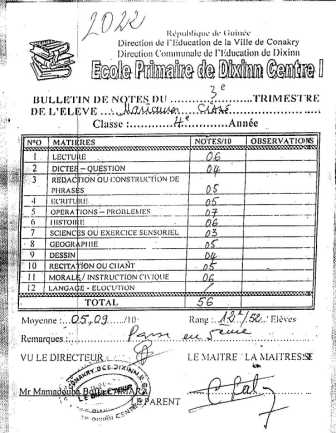 2022
République de Guinée
Direction de l'Education de la Ville de Conakry
Direction Communale de l'Education de Dixinn
Ecole Primaire de Dixinn Centre I
BULLETIN DE NOTES DU 3e TRIMESTRE
DE L'ELEVE
Classe : 4e Année
N°O MATIERES NOTES/10 OBSERVATIONS
1 LECTURE 06
2 DICTEE – QUESTION 04
3 REDACTION OU CONSTRUCTION DE PHRASES 05
4 ECRITURE 05
5 OPERATIONS – PROBLEMES 07
6 HISTOIRE 06
7 SCIENCES OU EXERCICE SENSORIEL 03
8 GEOGRAPHIE 05
9 DESSIN 04
10 RECITATION OU CHANT 05
11 MORALE / INSTRUCTION CIVIQUE 06
12 LANGAGE - ELOCUTION
TOTAL 56
Moyenne : 05,09 /10 Rang : /52 Elèves
Remarques :
VU LE DIRECTEUR LE MAITRE LA MAITRESSE
LE DIRECTEUR
Mr Mamadouba
LE PARENT